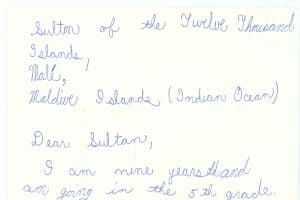 Sultan of the Twelve Thousand
Islands,
Malé,
Maldive Islands (Indian Ocean)
Dear Sultan,
I am nine years old and
am going in the 5th grade.